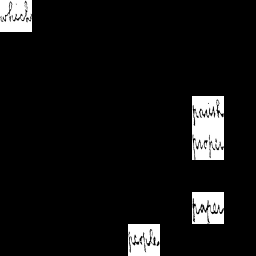 which
parish
proper
paper
people.